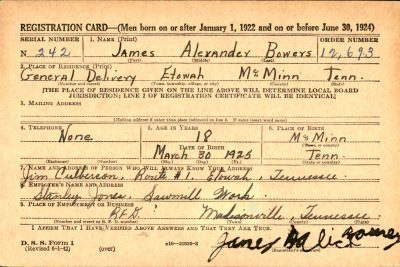 REGISTRATION CARD—(Men born on or after January 1, 1922 and on or before June 30, 1924)
SERIAL NUMBER 1. Name (Print) ORDER NUMBER
N 242 James Alexander Bowers 12,693
(First) (Middle) (Last)
2. PLACE OF RESIDENCE (Print)
General Delivery Etowah McMinn Tenn.
(Number and street) (Town, township, village, or city) (County) (State)
[THE PLACE OF RESIDENCE GIVEN ON THE LINE ABOVE WILL DETERMINE LOCAL BOARD
JURISDICTION; LINE 2 OF REGISTRATION CERTIFICATE WILL BE IDENTICAL]
3. MAILING ADDRESS
[Mailing address if other than place indicated on line 2. If same insert word same]
4. TELEPHONE 5. AGE IN YEARS 6. PLACE OF BIRTH
None 18 McMinn
DATE OF BIRTH (Town or county)
March 30 1925 Tenn.
(Exchange) (Number) (Mo.) (Day) (Yr.) (State or country)
7. NAME AND ADDRESS OF PERSON WHO WILL ALWAYS KNOW YOUR ADDRESS
Jim Culberson, Route #1. Etowah, Tennessee
8. EMPLOYER'S NAME AND ADDRESS
Stanley Jones, Sawmill Work
9. PLACE OF EMPLOYMENT OR BUSINESS
R.F.D. Madisonville, Tennessee
(Number and street or R. F. D. number) (Town) (County) (State)
I AFFIRM THAT I HAVE VERIFIED ABOVE ANSWERS AND THAT THEY ARE TRUE.
D. S. S. Form 1
(Revised 6-1-42) (over)
James